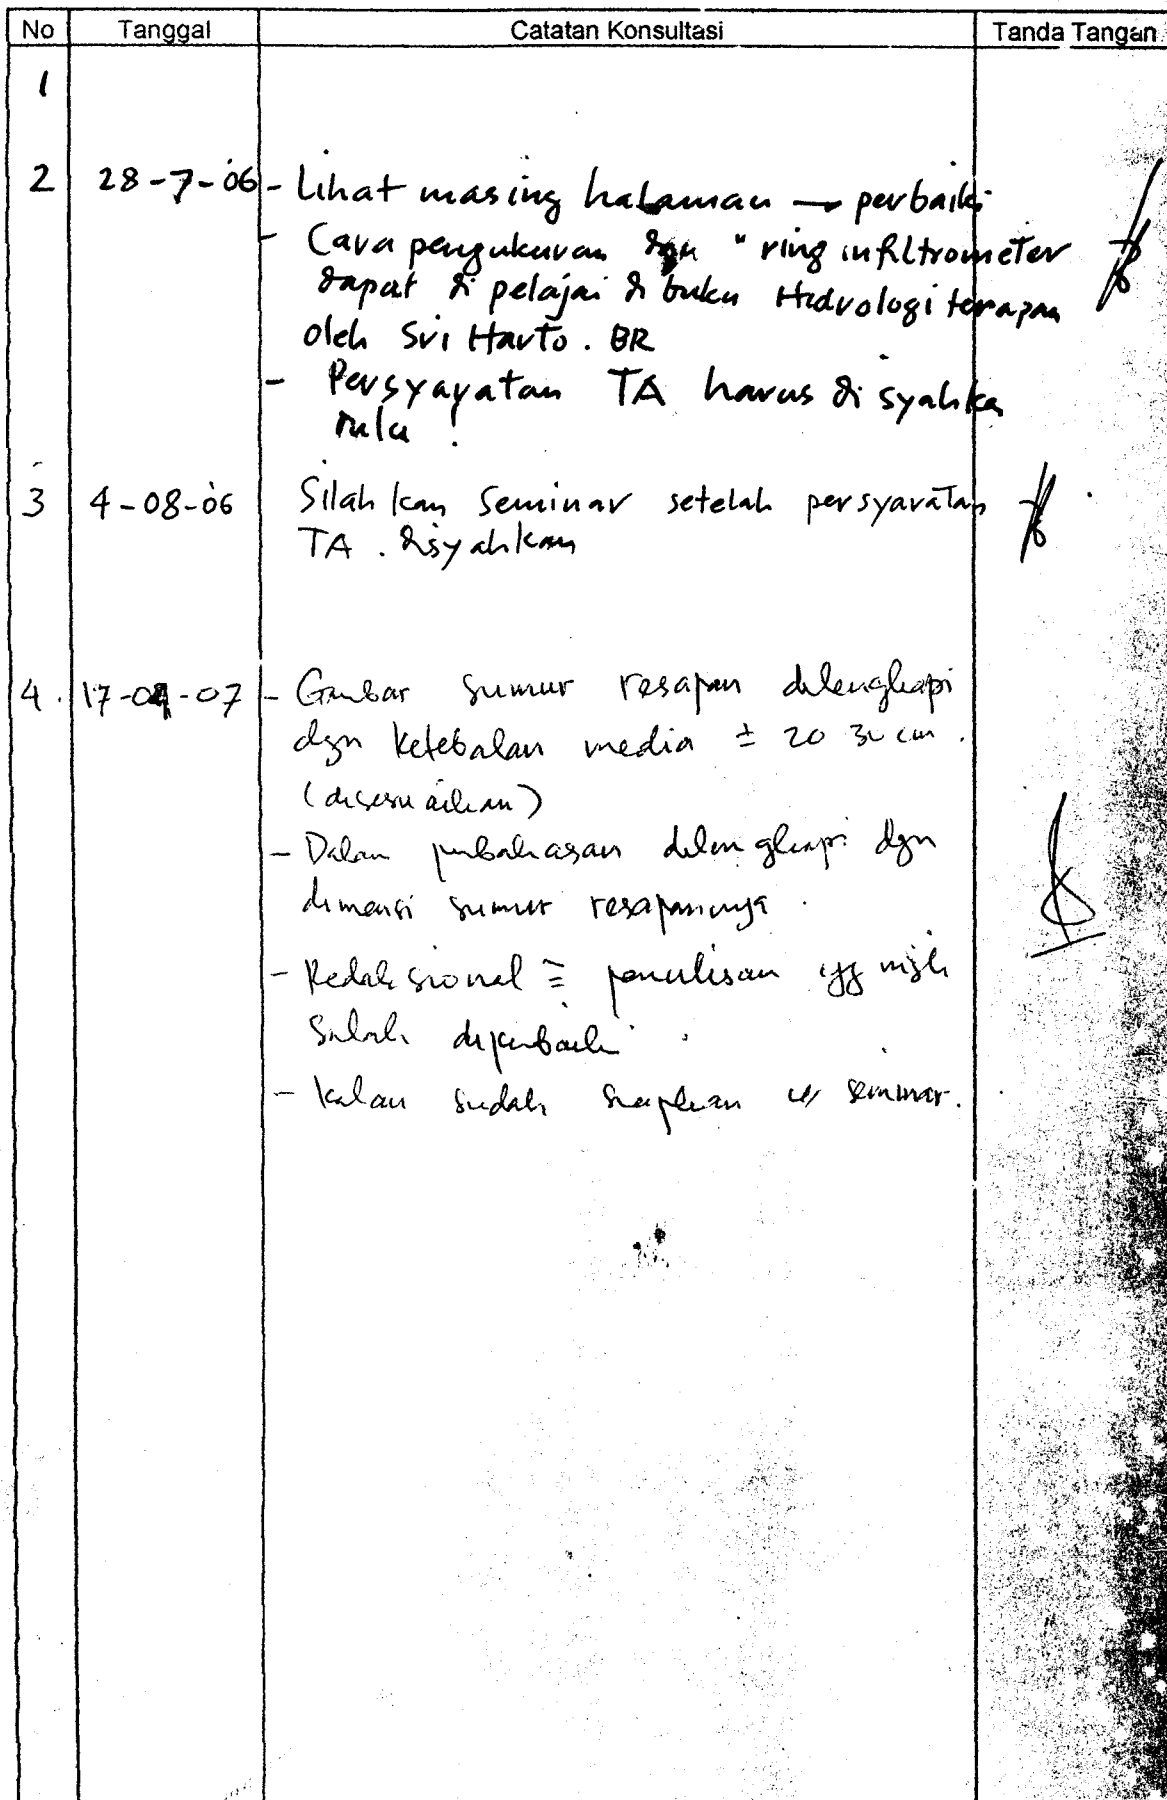 No Tanggal Catatan Konsultasi Tanda Tangan
1
2 28-7-06 - Lihat masing halaman → perbaiki
- Cara pengukuran dgn " ring infiltrometer
dapat di pelajai di buku Hidrologi terapan
oleh Sri Harto. BR
- Persyaratan TA harus di syahka
dulu !
3 4-08-06 Silahkan Seminar setelah persyaratan
TA . disyahkan
4. 17-04-07 - Gambar sumur resapan dilengkapi
dgn ketebalan media ± 20 30 cm .
(disesuaikan)
- Dalam pembahasan dilengkapi dgn
dimensi sumur resapannya .
- Redaksional = penulisan yg msh
Salah diperbaiki .
- kalau sudah siapkan u/ seminar.